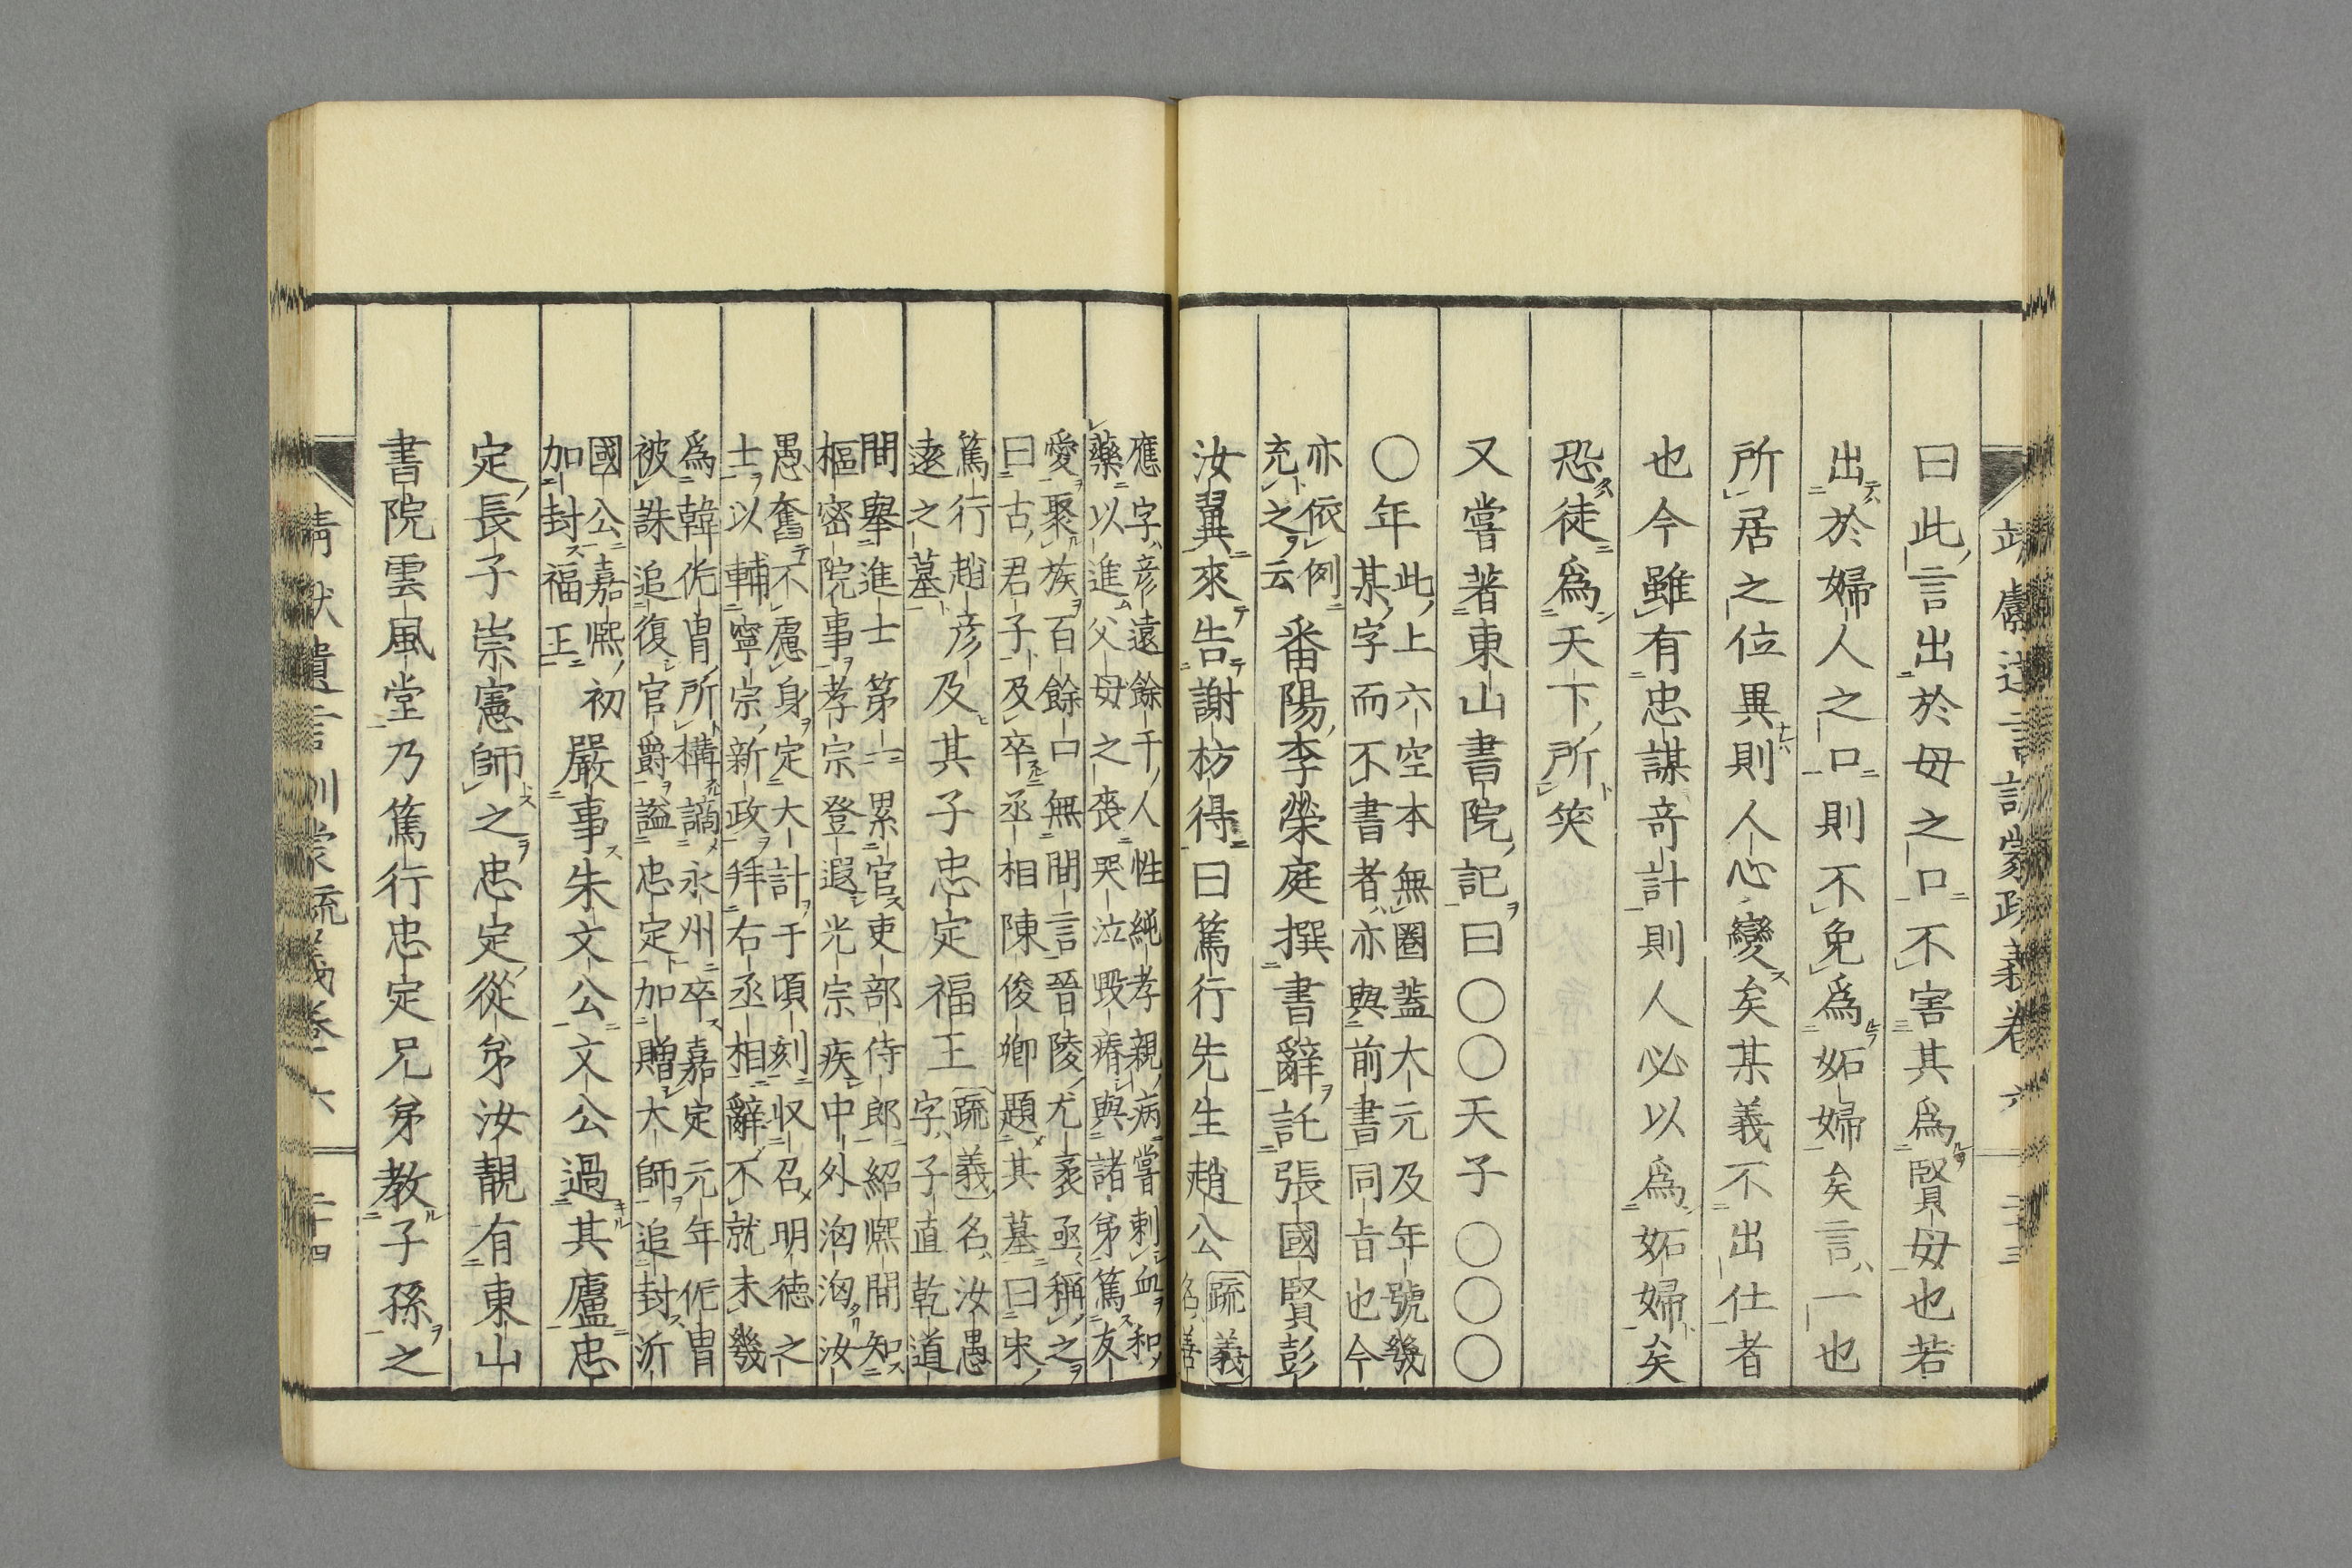 靖獻遺言訓蒙疏義卷六 二十三
曰此言出於母之口不害其爲賢母也若
出於婦人之口則不免爲妬婦矣言一也
所居之位異則人心變矣某義不出仕者
也今雖有忠謀奇計則人必以爲妬婦矣
恐徒爲天下所笑
又嘗著東山書院記曰〇〇天子〇〇〇
〇年此上六空本無圈蓋大元及年號幾
某字而不書者亦與前書同旨也今
亦依例
充之云番陽李榮庭撰書辭託張國賢彭
汝翼來告謝枋得曰篤行先生趙公疏義
名善
應字彦遠餘干人性純孝親病嘗刺血和
藥以進父母之喪哭泣毀瘠與諸弟篤友
愛聚族百餘口無間言晉陵尤袤亟稱之
曰古君子及卒丞相陳俊卿題其墓曰宋
篤行趙彦
遠之墓及其子忠定福王疏義名汝愚
字子直乾道
間舉進士第一累官吏部侍郎紹熙間知
樞密院事孝宗登遐光宗疾中外洶洶汝
愚奮不慮身定大計于頃刻収召明德之
士以輔寧宗新政拜右丞相辭不就未幾
爲韓侂冑所構謫永州卒嘉定元年侂冑
被誅追復官爵謚忠定加贈大師追封沂
國公嘉熙初
加封福王嚴事朱文公文公過其廬忠
定長子崇憲師之忠定從弟汝靚有東山
書院雲風堂乃篤行忠定兄弟教子孫之
靖獻遺言訓蒙疏義卷六 二十四